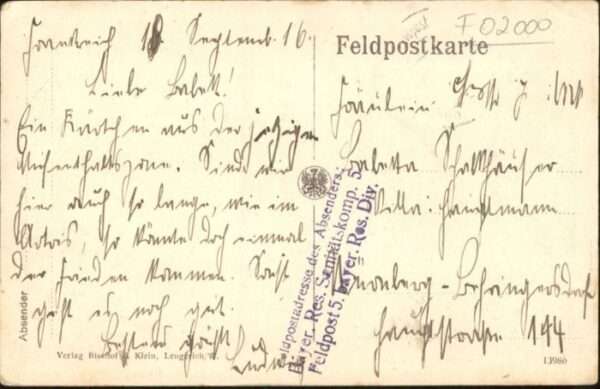 F 02000
Frankreich 18. Septemb. 16.
Liebe Babett!
Ein Kärtchen aus der jetzigen
Aufenthaltszone. Sind wir
hier auch so lange, wie im
Artois, so könnte doch einmal
der Frieden kommen. Sonst
geht es noch gut.
Besten Gruß!
Ludwig
Absender
Verlag Bischof & Klein, Lengerich, W.
Feldpostkarte
Fräulein
Babetta Schalkhäuser
Villa: Hauptmann
Nürnberg - Behringersdorf
Hauptstraße 144
Feldpostadresse des Absenders:
Bayer. Res. Sanitätskomp. 5
Feldpost 5. bayer. Res. Div.
13980